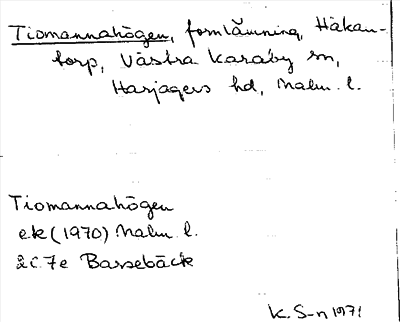 Tiomannahögen, fornlämning, Håkan-
torp, Västra Karaby sn,
Harjagers hd, Malm. l.
Tiomannahögen
ek (1970) Malm. l.
2C 7e Barsebäck
K. S-n 1971